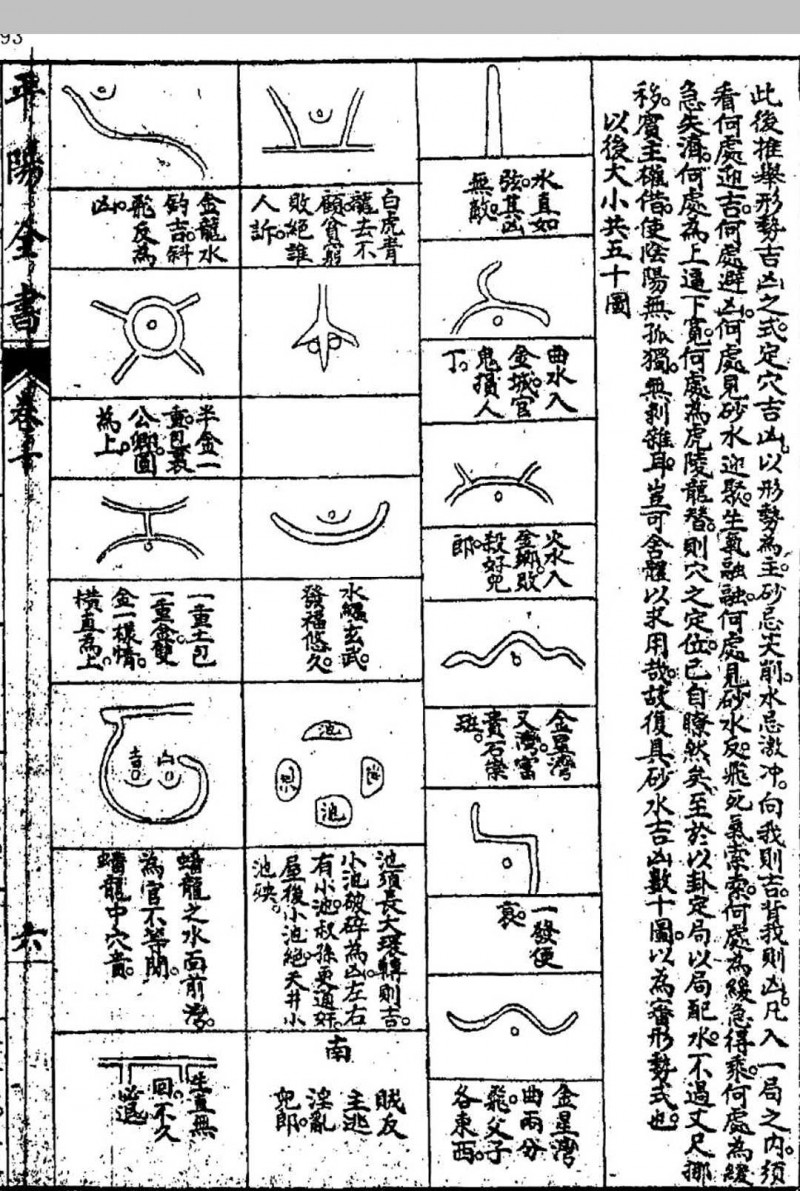 此後推舉形勢吉凶之式。定穴吉凶。以形勢為主。砂忌尖削。水忌激冲。向我則吉。背我則凶。凡入一局之內。須
看何處迎吉。何處避凶。何處見砂水迎聚。生氣融融。何處見砂水反飛。死氣索索。何處為緩急得乘。何處為緩
急失濟。何處為上逼下寬。何處為虎陵龍替。則穴之定位。已自瞭然矣。至於以卦定局。以局配水。不過丈尺挪
移。賓主權借。使陰陽無孤獨。無剥雜耳。豈可舍體以求用哉。故復具砂水吉凶數十圖。以為審形勢式也。
以後大小共五十圖
水直如
弦。其凶
無敵。
曲水入
金城。官
鬼損人
丁。
火水入
金鄉。敗
殺好兒
郎。
金星灣
又灣。富
貴石崇
班。
一發便
衰。
金星灣
曲兩分
飛。父子
各東西。
白虎青
龍去不
顧。貧窮
敗絕誰
人訴。
水纏玄武。
發福悠久。
池
池
池
池
池須長大環轉則吉。
小池破碎為凶。左右
有小池。叔孫更通奸。
屋後小池絕。天井小
池殃。
南
賊反
主逃
淫亂
兒郎。
金龍水
鈎吉。斜
飛反為
凶。
半金一
重包裹
公卿。圓
為上。
一重土包
一重金。雙
金一樣情。
橫直為上。
吉
凶
蟠龍之水面前灣。
為官不等閒。
蟠龍中穴貴。
生直無
回。不久
必退。
平陽全書
卷十
六
93